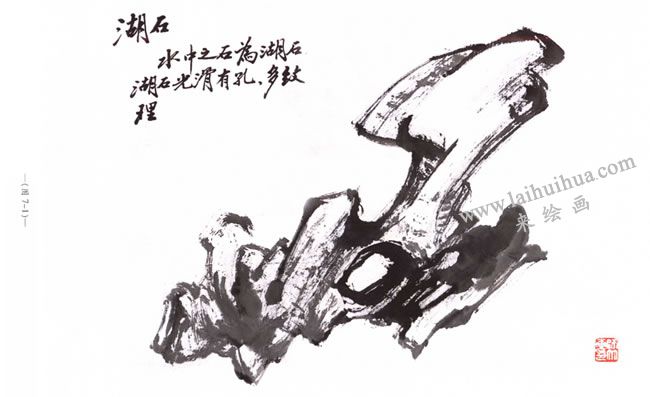 湖石
水中之石為湖石
湖石光滑有孔、多紋
理
—(图 7-1)—
www.laihuihua.com
来绘画